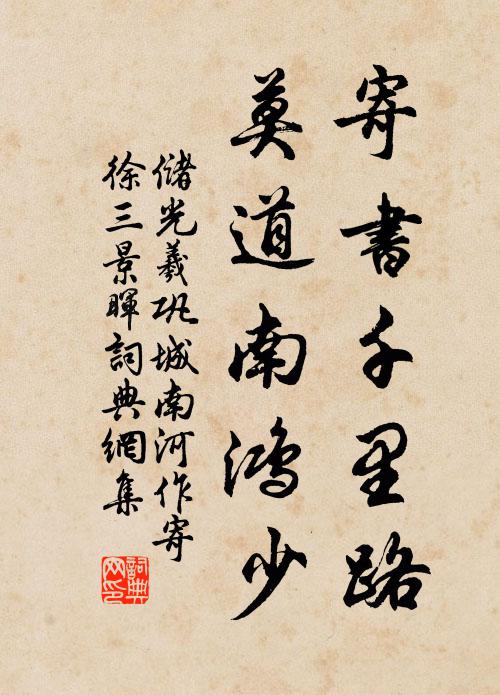 寄書千里路
莫道南鴻少
儲光羲巩城南河作寄
徐三景暉詞典網集
詞典
网印